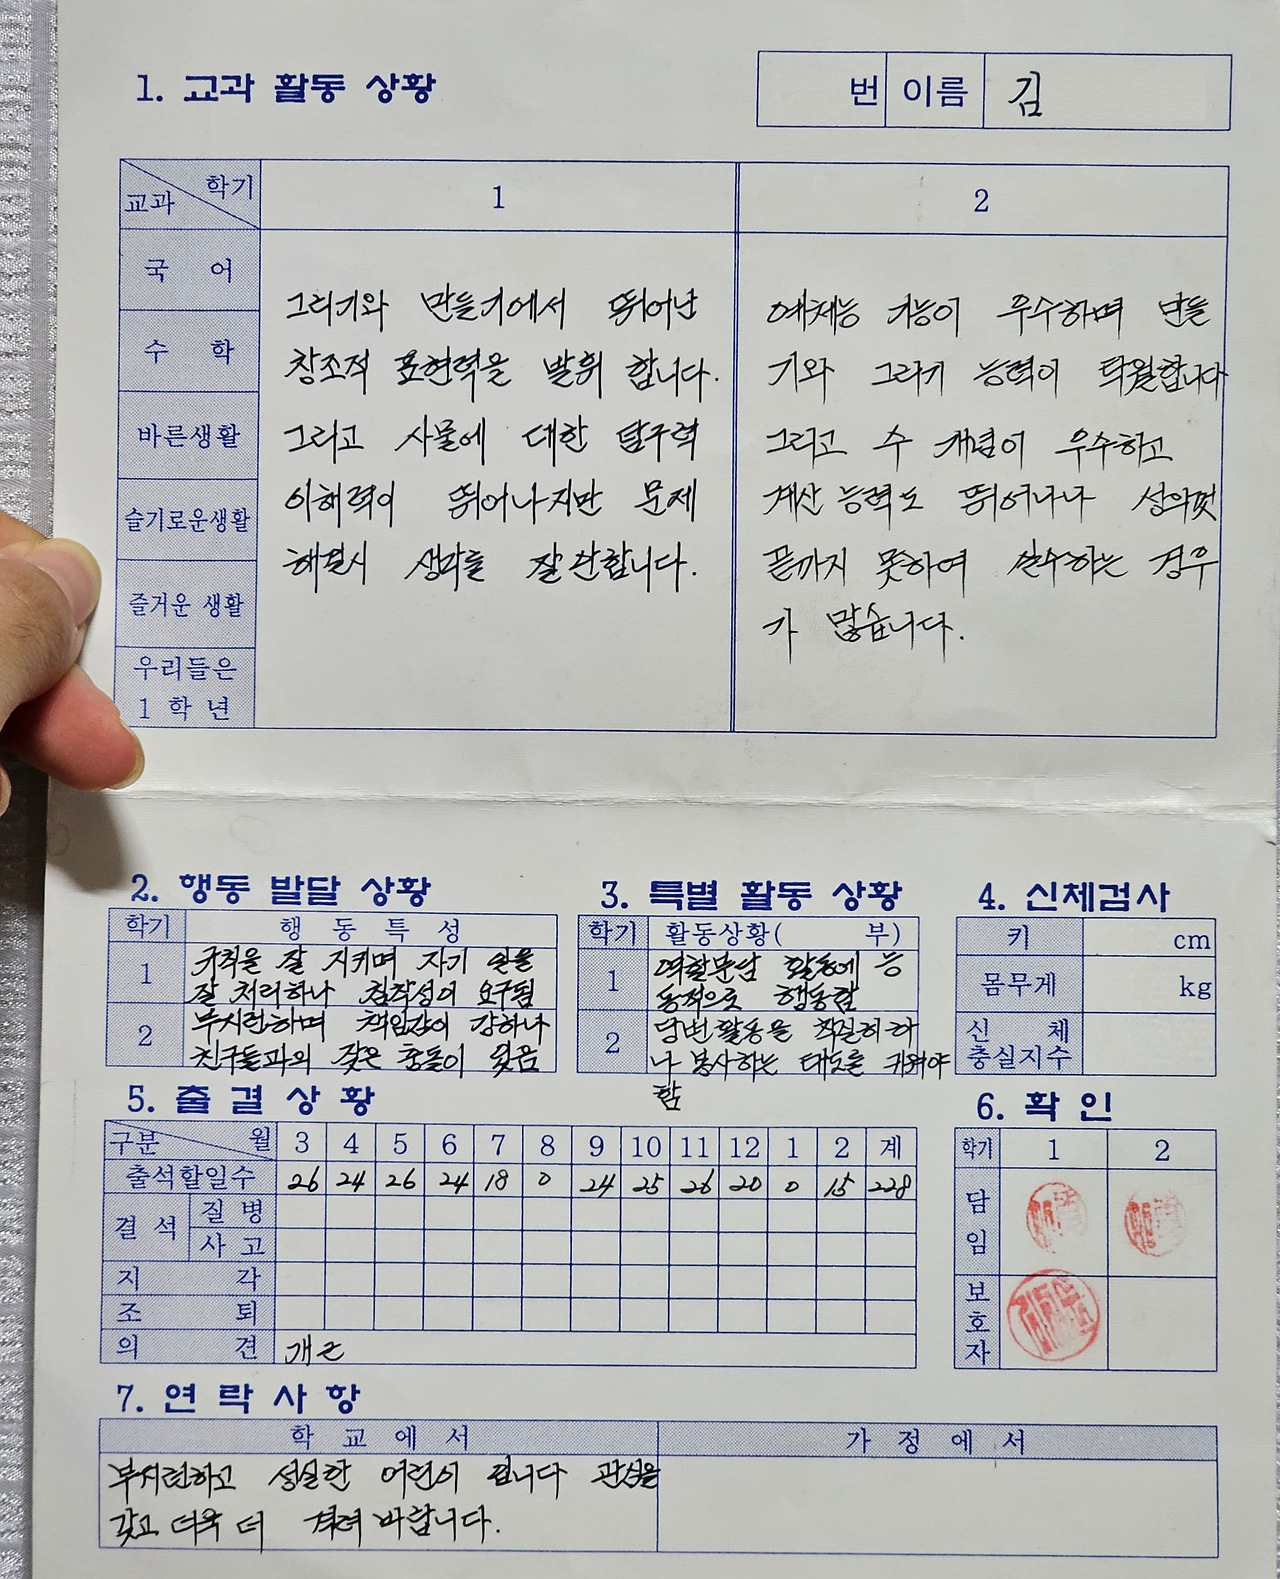 1. 교과 활동 상황
번 이름 김
학기 교과 1 2
국 어
수 학
바른생활
슬기로운생활
즐거운 생활
우리들은
1 학 년
그리기와 만들기에서 뛰어난
창조적 표현력을 발휘 합니다.
그리고 사물에 대한 탐구력
이해력이 뛰어나지만 문제
해결시 생각을 잘 안합니다.
예체능 기능이 우수하며 만들
기와 그리기 능력이 탁월합니다
그리고 수 개념이 우수하고
계산 능력도 뛰어나나
끝까지 못하여 실수하는 경우
가 많습니다.
2. 행동 발달 상황
학기 행 동 특 성
1 규칙을 잘 지키며 자기 일을
잘 처리하나 침착성이 요구됨
2 부지런하며 책임감이 강하나
친구들과의 잦은 충돌이 잦음
3. 특별 활동 상황
학기 활동상황( 부)
1 역할분담 활동에 능
동적으로 행동함
2 당번활동을 착실히 하
나 봉사하는 태도를 키워야
함
4. 신체검사
키 cm
몸무게 kg
신 체
충실지수
5. 출 결 상 황
구분 월 3 4 5 6 7 8 9 10 11 12 1 2 계
출석할일수 26 24 26 24 18 0 24 25 26 20 0 15 228
결 석 질 병
사 고
지 각
조 퇴
의 견 개근
6. 확 인
학기 1 2
담
임
보
호
자
7. 연 락 사 항
학 교 에 서 가 정 에 서
부지런하고 성실한 어린이 입니다 관심을
갖고 더욱 더 격려 바랍니다.